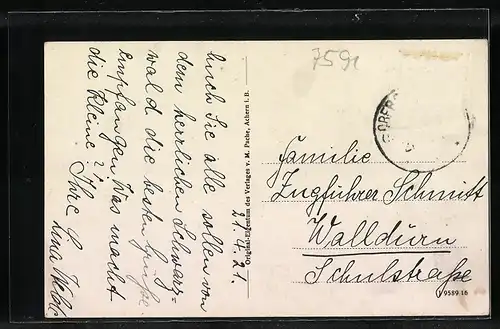 21.4.21.
Auch Sie alle sollen von
dem herrlichen Schwarz-
wald die besten Grüße
empfangen. Was macht
die Kleine?
Ihre
Lina
Original-Eigentum des Verlages v. M. Pache, Achern i. B.
759
OBER
Familie
Zugführer Schmitt
Walldürn
Schulstraße
9589 16